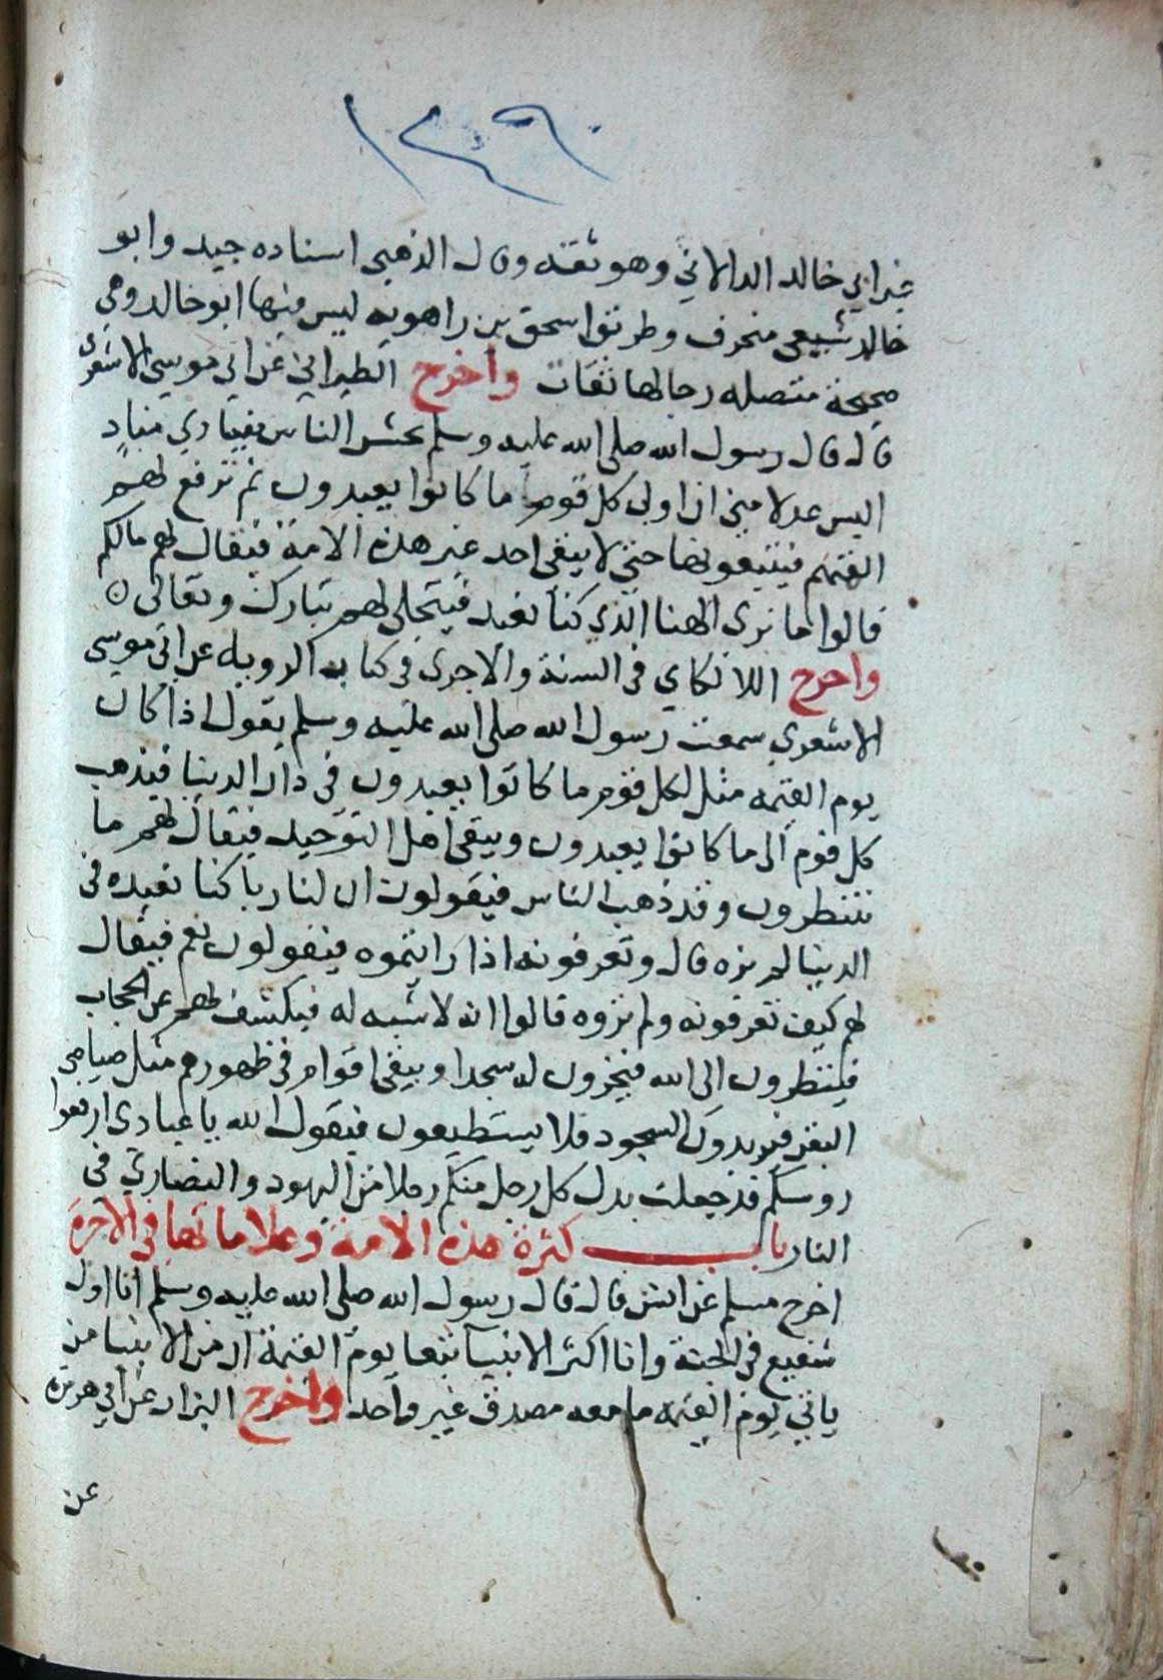 ١٢٩٠
غير ابي خالد الدالاني وهو ثقة وقال الذهبي اسناده جيد وابو
خالد شيعي منحرف وطريق اسحق بن راهويه ليس فيها ابو خالد وهي
صحيحة متصله رجالها ثقات واخرج الطبراني عن ابي موسى الاشعرى
قال قال رسول الله صلى الله عليه وسلم يحشر الناس فينادي مناد
اليس عدلا مني ان اولى كل قوم ما كانوا يعبدون ثم ترفع لهم
الهتهم فيتبعونها حتى لا يبقى احد غير هذه الامة فيقال لهم مالكم
قالوا ما نرى الهنا الذي كنا نعبد فيتجلى لهم تبارك وتعالى ه
واخرج اللالكاي في السنة والاجرى في كتابه الرويه عن ابي موسى
الاشعري سمعت رسول الله صلى الله عليه وسلم يقول اذا كان
يوم القيمه مثل لكل قوم ما كانوا يعبدون في دار الدنيا فيذهب
كل قوم الى ما كانوا يعبدون ويبقى اهل التوحيد فيقال لهم ما
تنتظرون وقد ذهب الناس فيقولون ان لنا ربا كنا نعبده في
الدنيا لم نره قال وتعرفونه اذا رايتموه فيقولون نعم فيقال
لهم كيف تعرفونه ولم تروه قالوا انه لا شبه له فيكشف لهم عن الحجاب
فينظرون الى الله فيخرون له سجدا ويبقى اقوام في ظهورهم مثل صياصي
البقر فيريدون السجود فلا يستطيعون فيقول الله يا عبادى ارفعوا
روسكم قد جعلت بدل كل رجل منكم رجلا من اليهود والنصارى في
النار باب كثرة هذه الامة وعلاماتها في الاخرة
اخرج مسلم عن انس قال قال رسول الله صلى الله عليه وسلم انا اول
شفيع في الجنة وانا اكثر الانبيا تبعا يوم القيمة ان من الانبيا من
ياتي يوم القيمه ما معه مصدق غير واحد واخرج البزار عن ابي هريره
عن